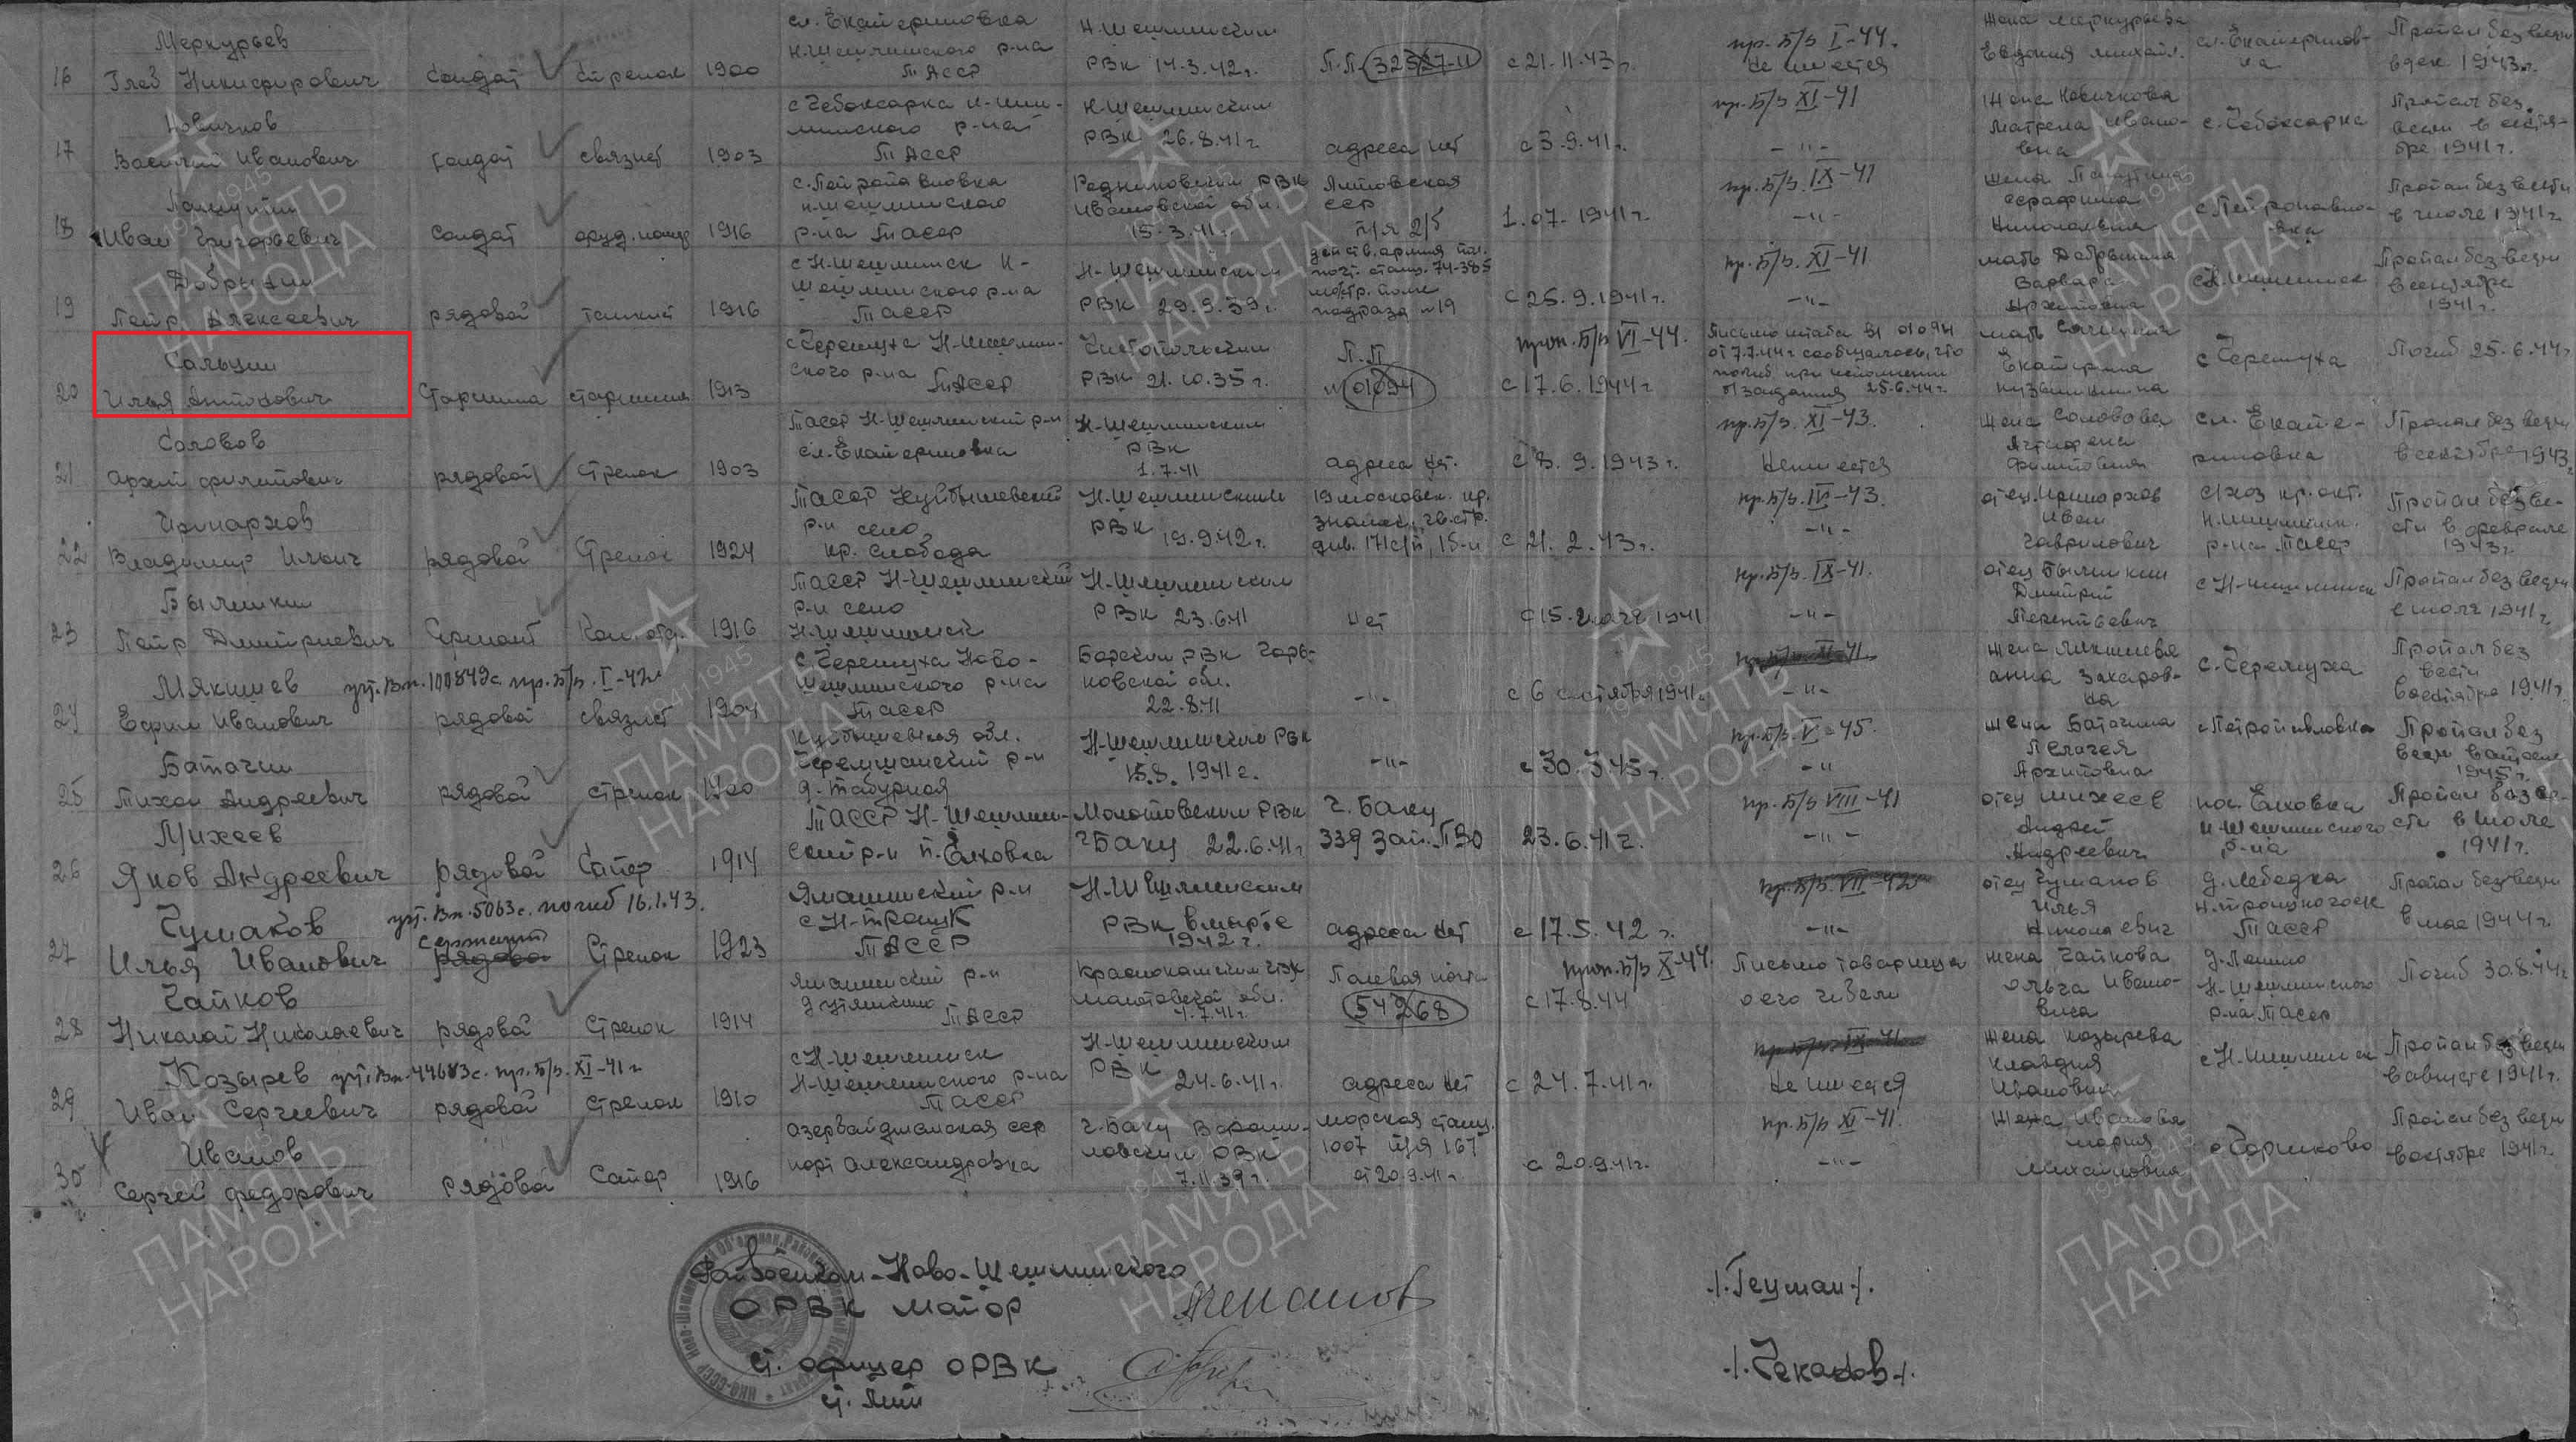 Меркурьев
16 Глеб Никифорович солдат стрелок 1900
сл. Екатериновка
Н.Шешминского р-на
ТАССР
Н.Шешминским
РВК 14.3.42г.
П.П. 32327-И
с 21.11.43г.
пр. б/в I-44.
Не имеется
жена Меркурьева
Евдокия Михайл.
сл. Екатеринов-
ка
Пропал без вести
в дек 1943г.
Новичков
17 Василий Иванович солдат связист 1903
с Чебоксарка Н-Шеш-
минского р-на
ТАССР
Н-Шешминским
РВК 26.8.41г
адреса нет
с 3.9.41г.
пр. б/в XI-41
-"-
жена Новичкова
Матрена Ивано-
вна
с. Чебоксарка
Пропал без
вести в сентя-
бре 1941г.
18 Иван Григорьевич солдат 1916
с. Петропавловка
Н-Шешминского
р-на ТАССР
Родниковским РВК
Ивановской обл.
15.3.41г.
Литовская
ССР
п/я 2/5
1.07.1941г.
пр. б/в. IX-41
-"-
жена
Серафима
Николаевна
с Петропавло-
вка
Пропал без вести
в июле 1941г.
Добрынин
19 Петр Алексеевич рядовой танкист 1916
с Н-Шешминск Н-
Шешминского р-на
ТАССР
Н-Шешминским
РВК 29.9.39г.
действ. армия пол.
почт. станц. 74-385
с 25.9.1941г.
пр. б/в. XI-41
-"-
мать Добрынина
Варвара
Архиповна
с Н.Шешминск
Пропал без вести
в сентябре
1941г.
Сальцин
20 Илья Антонович старшина старшина 1913
с Черемуха Н-Шешмин-
ского р-на
ТАССР
Чистопольским
РВК 21.10.35г.
П.П
№ 01094
с 17.6.1944г
проп. б/в VI-44.
Письмо штаба ВЧ 01094
от 7.7.44г сообщалось, что
погиб при исполнении
б/задания 25.6.44г.
мать
Екатерина
Кузьминична
с Черемуха
Погиб 25.6.44г
Соловов
21 Архип Филиппович рядовой стрелок 1903
ТАССР Н-Шешминский р-н
сл. Екатериновка
Н-Шешминским
РВК
1.7.41
адреса нет.
с 8.9.1943г.
пр. б/в. XI-43.
Не имеется
жена Соловова
Филипповна
сл. Екате-
риновка
Пропал без вести
в сентябре 1943г
Иринархов
22 Владимир Ильич рядовой Стрелок 1924
ТАССР Куйбышевский
р-н село
Кр. Слобода
Н-Шешминским
РВК 19.9.42г.
19 московск. кр.
знамен. гв. стр.
див.
с 21.2.43г.
пр. б/в. IV-43.
-"-
отец Иринархов
Иван
Гаврилович
с/хоз кр. окт.
Н.Шешминск.
р-на ТАССР
Пропал без ве-
сти в феврале
1943г.
23 Петр Дмитриевич Сержант Ком. отд. 1916
ТАССР Н-Шешминский
р-н село
Н-Шешминск
Н-Шешминским
РВК 23.6.41
нет
с 15. июля 1941
пр. б/в. IX-41.
-"-
отец
Дмитрий
Терентьевич
с Н-Шешминск
Пропал без вести
с июля 1941г
Мякишев уч. Вх. 100849с. пр. б/в. I-42г
24 Ефим Иванович рядовой связист 1904
с Черемуха Ново-
Шешминского р-на
ТАССР
Борским РВК Горь-
ковской обл.
22.8.41
-"-
с 6 сентября 1941г.
пр. б/в XI-41.
-"-
жена Мякишева
Анна Захаров-
на
с. Черемуха
Пропал без
вести
в октябре 1941г.
Батагин
25 Тихон Андреевич рядовой стрелок 1900
Куйбышевская обл.
Черемшанский р-н
д. Табурная
Н-Шешминским РВК
15.8.1941г.
-"-
с 30.3.45г.
пр. б/в. V-45.
-"-
жена Батагина
Пелагея
Архиповна
с Петропавловка
Пропал без
вести в апреле
1945г.
Михеев
26 Яков Андреевич рядовой Сапер 1914
ТАССР Н-Шешмин-
ский р-н п. Елховка
Молотовским РВК
г Баку 22.6.41г
г. Баку
339 Зап. ПВО
23.6.41г.
пр. б/в VIII-41
-"-
отец Михеев
Андрей
Андреевич
пос. Елховка
Н-Шешминского
р-на
Пропал без ве-
сти в июле
1941г.
Чумаков уч. Вх. 5063с. погиб 16.1.43.
сержант
27 Илья Иванович рядовой Стрелок 1923
Ямашинский р-н
с Н-Троицк
ТАССР
Н-Шешминским
РВК в марте
1942г.
адреса нет
с 17.5.42г.
пр. б/в. VII-42г
-"-
отец Чумаков
Илья
Николаевич
д. Лебедка
ТАССР
Пропал без вести
в мае 1944г.
Чайков
28 Николай Николаевич рядовой Стрелок 1914
Ямашинский р-н
ТАССР
Краснокамским ГВК
Молотовской обл.
4.7.41г.
Полевая почта
54268
с 17.8.44
проп. б/в X-44.
Письмо товарища
о его гибели
жена Чайкова
Ольга Ивано-
вна
д. Ленино
Н-Шешминского
р-на ТАССР
Погиб 30.8.44г
Козырев уч. Вх. 44683с. пр. б/в. XI-41г
29 Иван Сергеевич рядовой стрелок 1910
с Н-Шешминск
Н-Шешминского р-на
ТАССР
Н-Шешминским
РВК 24.6.41г.
адреса нет
с 24.7.41г.
пр. б/в. IX-41
Не имеется
жена Козырева
Клавдия
Ивановна
с Н-Шешминск
Пропал без вести
в августе 1941г.
Иванов
30 Сергей Федорович рядовой Сапер 1916
Азербайджанская ССР
порт Александровка
г. Баку Вороши-
ловским РВК
7.11.39г.
морская станц.
1007 п/я 167
от 20.9.41г
с 20.9.41г.
пр. б/в XI-41.
-"-
жена Иванова
Мария
Михайловна
с Горшково
Пропал без вести
в октябре 1941г.
Райвоенком-Ново-Шешминского
ОРВК майор
/.Геуман./.
Ст. офицер ОРВК
ст. л-т
/.Чекасов./.
1941 1945
ПАМЯТЬ
НАРОДА